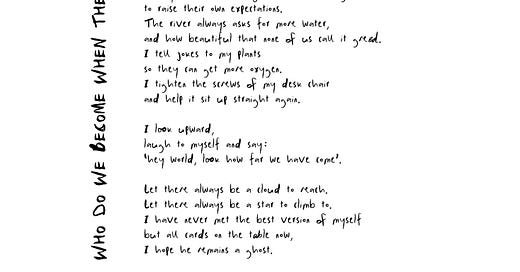 WHO DO WE BECOME WHEN THE
to raise their own expectations.
The river always asks for more water,
and how beautiful that none of us call it greed.
I tell jokes to my plants
so they can get more oxygen.
I tighten the screws of my desk chair
and help it sit up straight again.
I look upward,
laugh to myself and say:
'hey world, look how far we have come'.
Let there always be a cloud to reach.
Let there always be a star to climb to.
I have never met the best version of myself
but all cards on the table now,
I hope he remains a ghost.